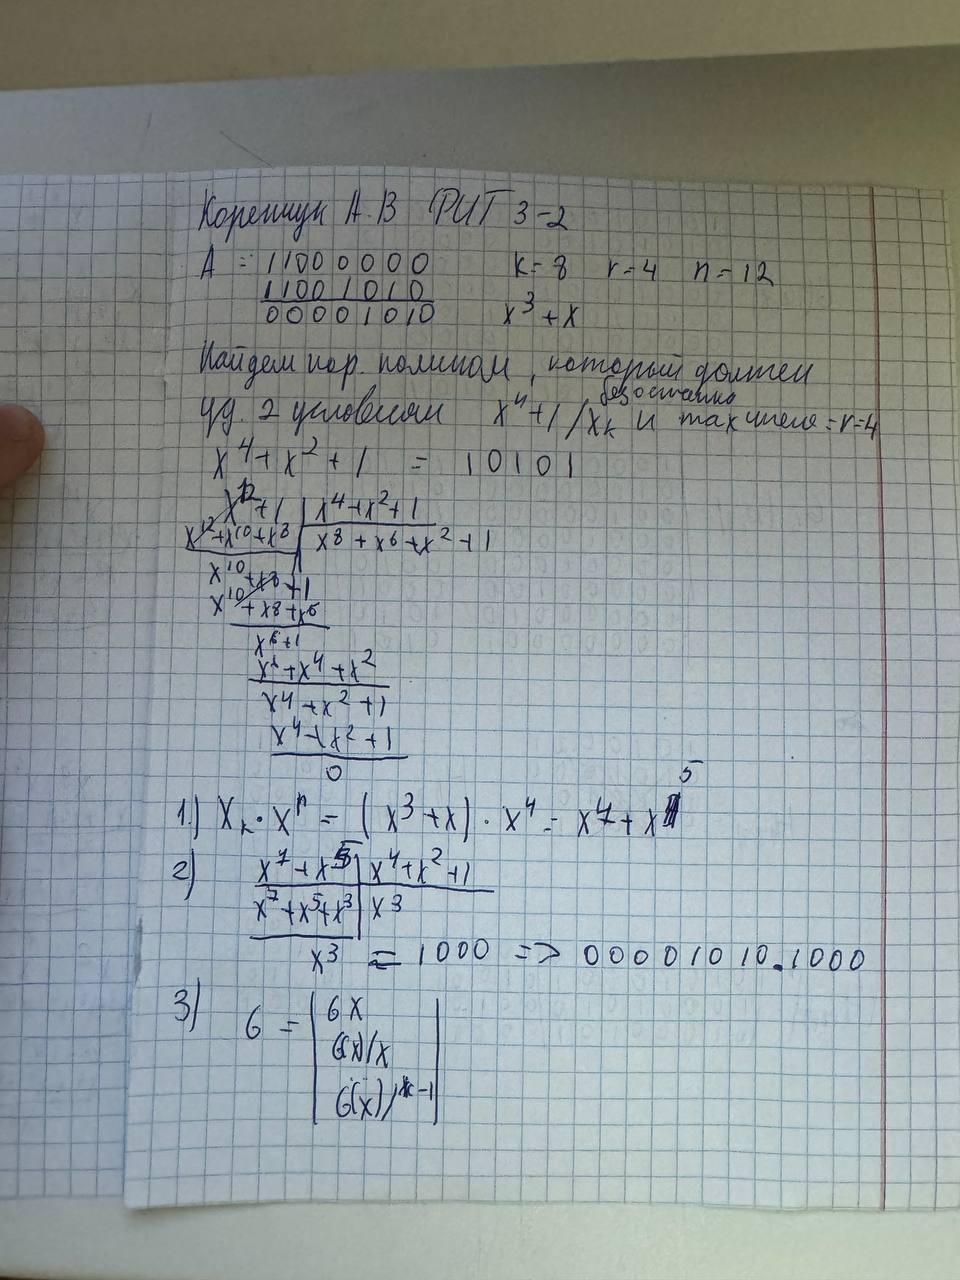 Корешук А.В РИТ 3-2
A = 11000000 k=8 r=4 n=12
11001010
00001010 x³+x
Найдем пор. полином, который должен
уд. 2 условиям x⁴+1/xₖ без остатка и max член=r=4
x⁴+x²+1 = 10101
x¹²+1 | x⁴+x²+1
x¹²+x¹⁰+x⁸ | x⁸+x⁶+x²+1
x¹⁰+x⁸+1
x¹⁰+x⁸+x⁶
x⁶+1
x⁶+x⁴+x²
x⁴+x²+1
x⁴+x²+1
0
1.) Xₖ·Xⁿ = (x³+x)·x⁴ = x⁷+x⁵
2) x⁷+x⁵ | x⁴+x²+1
x⁷+x⁵+x³ | x³
x³ = 1000 => 00001010.1000
3) G = | GX
G(x)/x
G(x)/ᵏ⁻¹ |